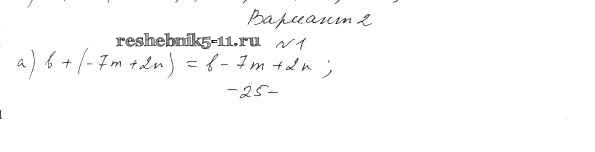 Вариант 2
reshebnik5-11.ru
№1
а) b + (-7m + 2n) = b - 7m + 2n ;
-25-